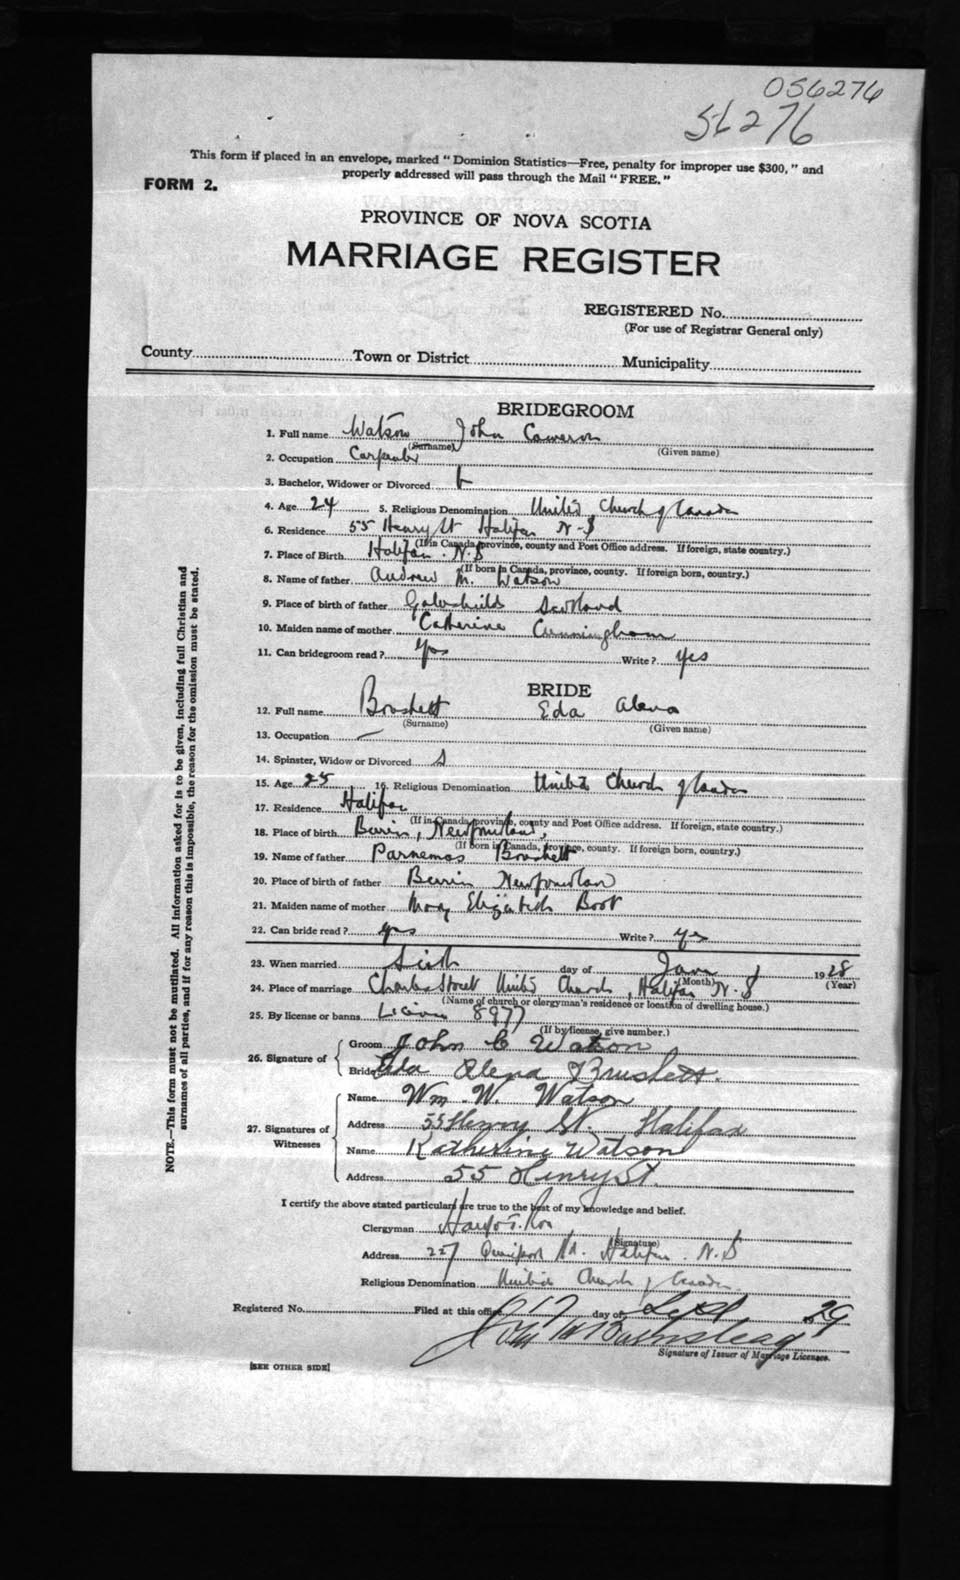 056276
56276
This form if placed in an envelope, marked "Dominion Statistics—Free, penalty for improper use $300," and
properly addressed will pass through the Mail "FREE."
FORM 2.
PROVINCE OF NOVA SCOTIA
MARRIAGE REGISTER
REGISTERED No.
(For use of Registrar General only)
County Town or District Municipality
BRIDEGROOM
1. Full name Watson John Cameron
(Surname) (Given name)
2. Occupation Carpenter
3. Bachelor, Widower or Divorced b
4. Age 24 5. Religious Denomination United Church of Canada
6. Residence 55 Henry St Halifax N.S
(If in Canada, province, county and Post Office address. If foreign, state country.)
7. Place of Birth Halifax. N.S
(If born in Canada, province, county. If foreign born, country.)
8. Name of father Andrew M. Watson
9. Place of birth of father Scotland
10. Maiden name of mother Catherine Cunningham
11. Can bridegroom read? Yes Write? Yes
BRIDE
12. Full name Brushett Eda Alena
(Surname) (Given name)
13. Occupation —
14. Spinster, Widow or Divorced S
15. Age 25 16. Religious Denomination United Church of Canada
17. Residence Halifax
(If in Canada, province, county and Post Office address. If foreign, state country.)
18. Place of birth Burin, Newfoundland,
(If born in Canada, province, county. If foreign born, country.)
19. Name of father Parnemas Brushett
20. Place of birth of father Burin Newfoundland
21. Maiden name of mother Mary Elizabeth
22. Can bride read? yes Write? yes
23. When married Sixth day of Jan 1928
(Month) (Year)
24. Place of marriage Charles Street United Church, Halifax N.S
(Name of church or clergyman's residence or location of dwelling house.)
25. By license or banns License 8977
(If by license, give number.)
26. Signature of
Groom John C Watson
Bride Eda Alena Brushett.
27. Signatures of Witnesses
Name Wm. W. Watson
Address 55 Henry St. Halifax
Name Katherine Watson
Address 55 Henry St.
I certify the above stated particulars are true to the best of my knowledge and belief.
Clergyman
(Signature)
Address 227 Rd. Halifax. N.S
Religious Denomination United Church of Canada
Registered No. Filed at this office 17 day of Sept 29
Signature of Issuer of Marriage Licenses.
[SEE OTHER SIDE]
NOTE.—This form must not be mutilated. All information asked for is to be given, including full Christian and
surnames of all parties, and if for any reason this is impossible, the reason for the omission must be stated.